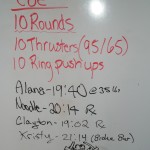 COE
10 Rounds
10 Thrusters (95/65)
10 Ring pushups
Alana - 19:40 @ 35lb
Noodle - 20:14 Rx
Clayton - 19:02 Rx
Kristy - 21:14 (Blake Bar)